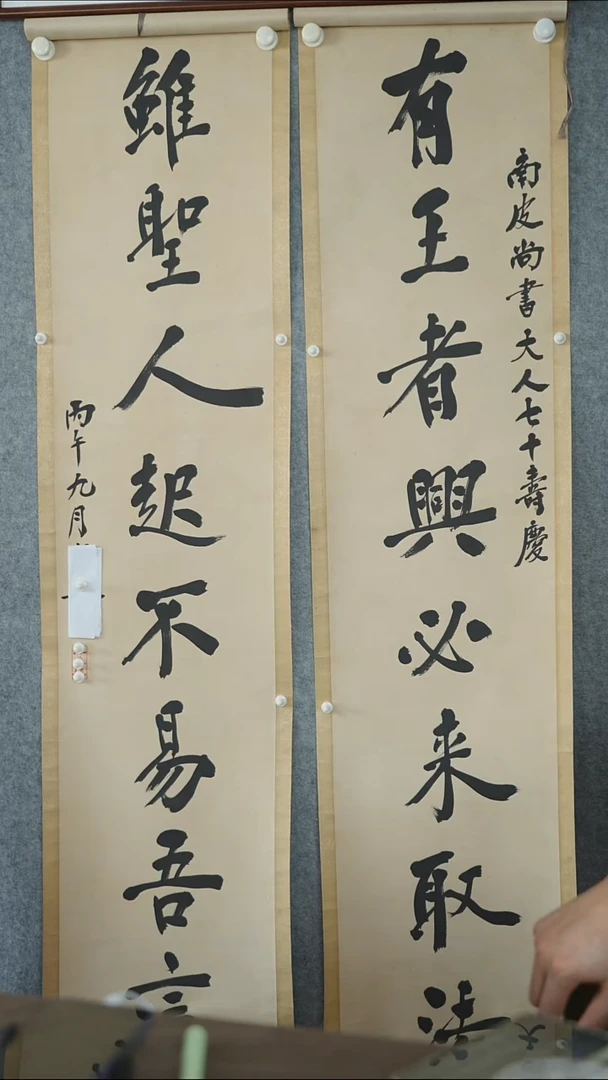 南皮尚書大人七十壽慶
有王者興必来取法
雖聖人起不易吾言
丙午九月